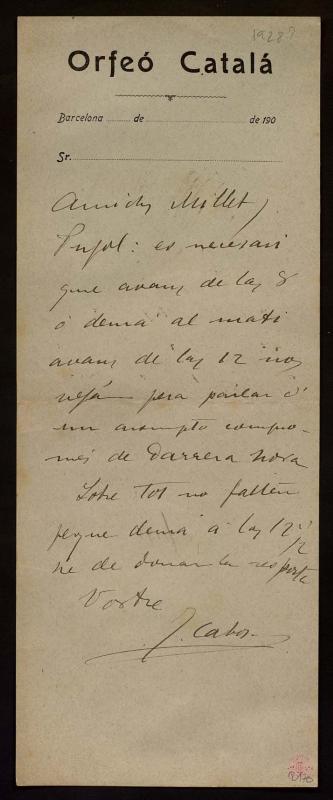 1928?
Orfeó Catalá
Barcelona de de 190
Sr.
Amichs Millet y
Pujol: es necesari
que avans de las 8
ó demá al matí
avans de las 12 nos
vejám pera parlar d'
un assumpto compro-
més de darrera hora
Sobre tot no falten
perque demá á las 12 1/2
he de donar la resposta
Vostre
J. Cabot